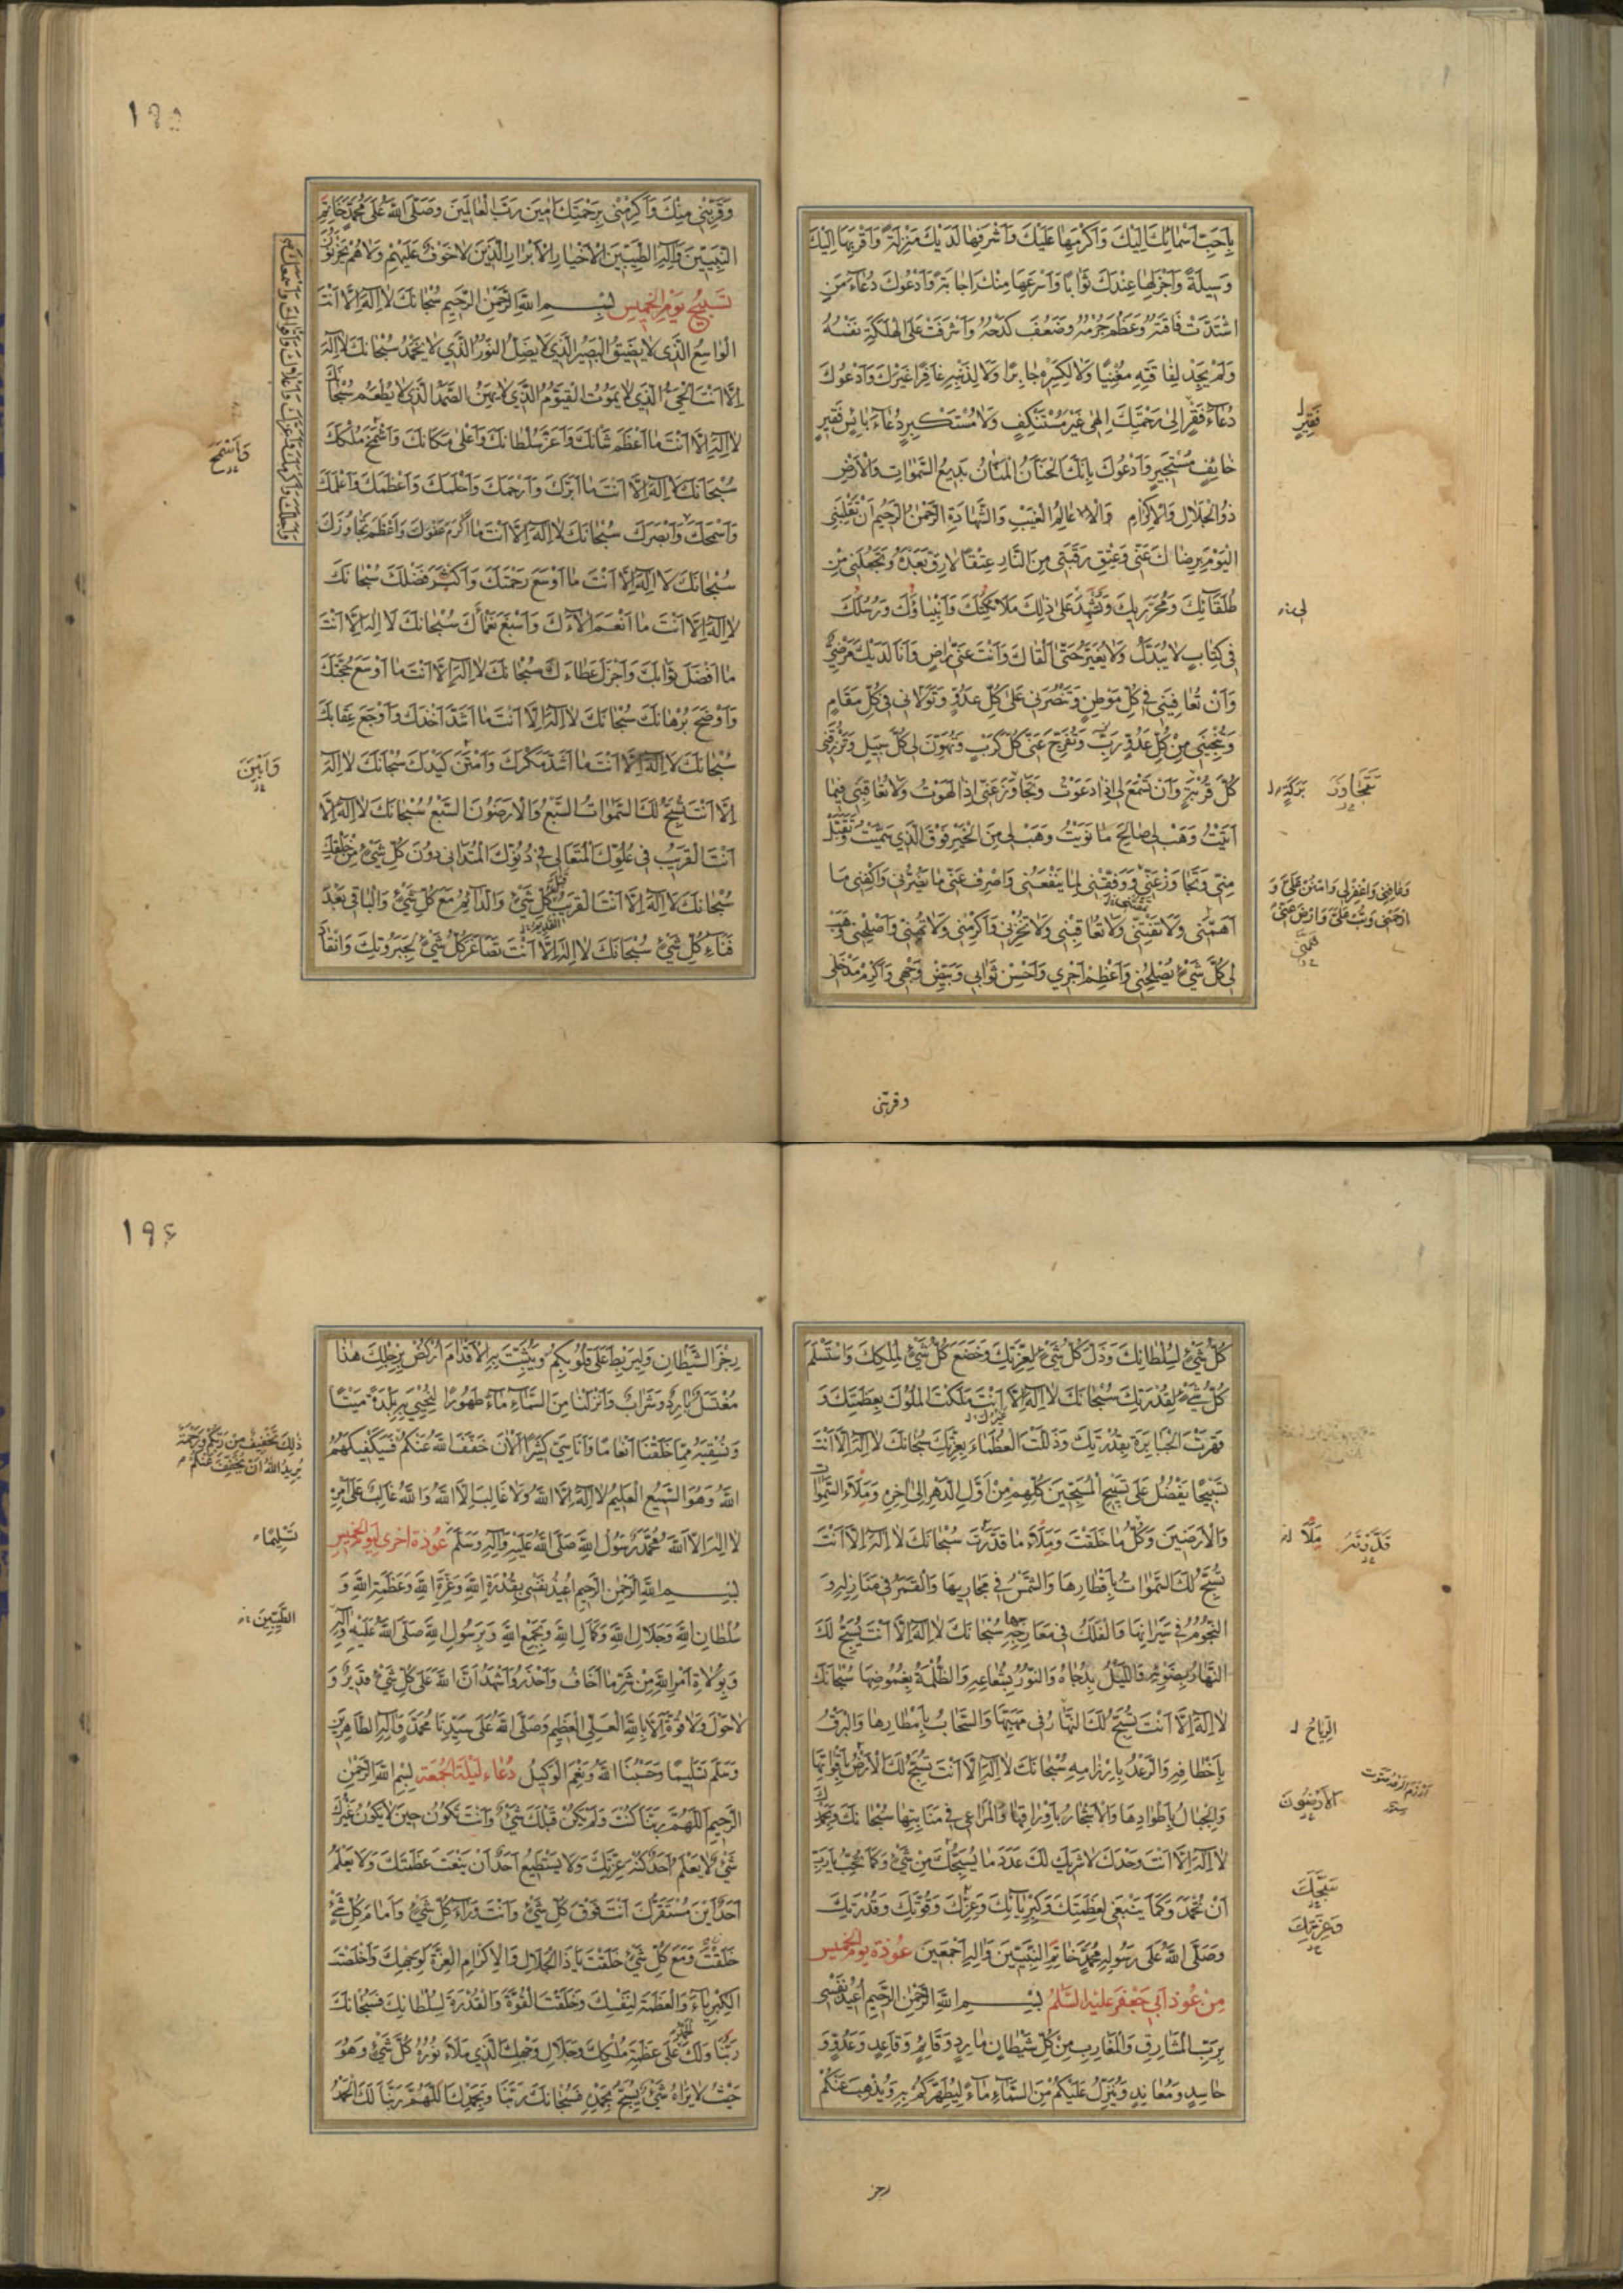 بِاَحَبِّ اَسْمائِكَ اِلَيْكَ وَاَكْرَمِها عَلَيْكَ وَاَشْرَفِها لَدَيْكَ مَنْزِلَةً وَاَقْرَبِها اِلَيْكَ
وَسِيلَةً وَاَجْزَلِها عِنْدَكَ ثَوابًا وَاَسْرَعِها مِنْكَ اِجابَةً وَاَدْعُوكَ دُعاءَ مَنِ
اشْتَدَّتْ فاقَتُهُ وَعَظُمَ جُرْمُهُ وَضَعُفَ كَدْحُهُ وَاَشْرَفَتْ عَلَى الْهَلَكَةِ نَفْسُهُ
وَلَمْ يَجِدْ لِفاقَتِهِ مُغْنِيًا وَلا لِكَسْرِهِ جابِرًا وَلا لِذَنْبِهِ غافِرًا غَيْرَكَ وَاَدْعُوكَ
دُعاءَ فَقْرٍ اِلى رَحْمَتِكَ اِلهى غَيْرَ مُسْتَنْكِفٍ وَلا مُسْتَكْبِرٍ دُعاءَ بائِسٍ فَقيرٍ
فَقيرٍ
خائِفٍ مُسْتَجيرٍ وَاَدْعُوكَ بِاَنَّكَ الْحَنّانُ الْمَنّانُ بَديعُ السَّمواتِ وَالْاَرْضِ
ذُو الْجَلالِ وَالْاِكْرامِ عالِمُ الْغَيْبِ وَالشَّهادَةِ الرَّحْمنُ الرَّحيمُ اَنْ تَقْلِبَنى
الْيَوْمَ بِرِضاكَ عَنّى وَعِتْقِ رَقَبَتى مِنَ النّارِ عِتْقًا لا رِقَّ بَعْدَهُ وَتَجْعَلَنى مِنْ
طُلَقائِكَ وَمُحَرَّريكَ وَتُشْهِدَ عَلى ذلِكَ مَلائِكَتَكَ وَاَنْبِياؤُكَ وَرُسُلَكَ
فى كِتابٍ لا يُبَدَّلُ وَلا يُغَيَّرُ حَتّى اَلْقاكَ وَاَنْتَ عَنّى راضٍ وَاَنَا لَدَيْكَ مَرْضِىٌّ
وَاَنْ تُعافِيَنى فى كُلِّ مَوْطِنٍ وَتَنْصُرَنى عَلى كُلِّ عَدُوٍّ وَتَوَلّانى فى كُلِّ مَقامٍ
وَتُنْجِيَنى مِنْ كُلِّ عَدُوٍّ رَبِّ وَتُفَرِّجَ عَنّى كُلَّ كَرْبٍ وَتُهَوِّنَ لى كُلَّ سَبيلٍ وَتَرْزُقَنى
كُلَّ قُرْبَةٍ وَاَنْ تَسْمَعَ لى اِذا دَعَوْتُ وَتَجاوَزَ عَنّى اِذا لَهَوْتُ وَلا تُعاقِبَنى فيما
بَرَكَةٍ تَتَجاوَزَ
اَتَيْتُ وَهَبْ لى صالِحَ ما نَوَيْتُ وَهَبْ لى مِنَ الْخَيْرِ فَوْقَ الَّذى سَمَّيْتُ وَتَقَبَّلْ
مِنّى وَتَجاوَزْ عَنّى وَوَفِّقْنى لِما يَنْفَعُنى وَاصْرِفْ عَنّى ما يَضُرُّنى وَاكْفِنى ما
وَعافِنى وَاغْفِرْلى وَامْنُنْ عَلَىَّ وَ
ارْحَمْنى وَتُبْ عَلَىَّ وَارْضَ عَنّى
اَهَمَّنى وَلا تَفْتِنّى وَلا تُعاقِبْنى وَلا تُخْزِنى وَاَكْرِمْنى وَلا تُهِنّى وَاَصْلِحْنى وَهَبْ
لى كُلَّ شَىْءٍ يُصْلِحُنى وَاَعْظِمْ اَجْرى وَاَحْسِنْ ثَوابى وَبَيِّضْ وَجْهى وَاَكْرِمْ مَدْخَلى
وقربنى
١٩٥
وَقَرِّبْنى مِنْكَ وَاَكْرِمْنى بِرَحْمَتِكَ امينَ رَبَّ الْعالَمينَ وَصَلَّى اللهُ عَلى مُحَمَّدٍ خاتَمِ
النَّبِيّينَ وَآلِهِ الطَّيِّبينَ الْاَخْيارِ الْاَبْرارِ الَّذينَ لا خَوْفٌ عَلَيْهِمْ وَلا هُمْ يَحْزَنُونَ
تَسْبيحُ يَوْمِ الْخَميسِ بِسْمِ اللهِ الرَّحْمنِ الرَّحيمِ سُبْحانَكَ لا اِلهَ اِلّا اَنْتَ
الْواسِعُ الَّذى لا يَضيقُ الْبَصيرُ الَّذى لا يَضِلُّ النُّورُ الَّذى لا يَخْمُدُ سُبْحانَكَ لا اِلهَ
اِلّا اَنْتَ الْحَىُّ الَّذى لا يَمُوتُ الْقَيُّومُ الَّذى لا يَهِنُ الصَّمَدُ الَّذى لا يُطْعَمُ سُبْحانَكَ
لا اِلهَ اِلّا اَنْتَ ما اَعْظَمَ شَاْنَكَ وَاَعَزَّ سُلْطانَكَ وَاَعْلى مَكانَكَ وَاَشْمَخَ مُلْكَكَ
سُبْحانَكَ لا اِلهَ اِلّا اَنْتَ ما اَبَرَّكَ وَاَرْحَمَكَ وَاَحْلَمَكَ وَاَعْظَمَكَ وَاَعْلَمَكَ
وَاَسْمَحَ
وَاَسْمَحَكَ وَاَبْصَرَكَ سُبْحانَكَ لا اِلهَ اِلّا اَنْتَ ما اَكْرَمَ عَفْوَكَ وَاَعْظَمَ تَجاوُزَكَ
سُبْحانَكَ لا اِلهَ اِلّا اَنْتَ ما اَوْسَعَ رَحْمَتَكَ وَاَكْثَرَ فَضْلَكَ سُبْحانَكَ
لا اِلهَ اِلّا اَنْتَ ما اَنْعَمَ الاءَكَ وَاَسْبَغَ نَعْماءَكَ سُبْحانَكَ لا اِلهَ اِلّا اَنْتَ
ما اَفْضَلَ ثَوابَكَ وَاَجْزَلَ عَطاءَكَ سُبْحانَكَ لا اِلهَ اِلّا اَنْتَ ما اَوْسَعَ حُجَّتَكَ
وَاَوْضَحَ بُرْهانَكَ سُبْحانَكَ لا اِلهَ اِلّا اَنْتَ ما اَشَدَّ اَخْذَكَ وَاَوْجَعَ عِقابَكَ
سُبْحانَكَ لا اِلهَ اِلّا اَنْتَ ما اَشَدَّ مَكْرَكَ وَاَمْتَنَ كَيْدَكَ سُبْحانَكَ لا اِلهَ
اِلّا اَنْتَ تُسَبِّحُ لَكَ السَّمواتُ السَّبْعُ وَالْاَرَضُونَ السَّبْعُ سُبْحانَكَ لا اِلهَ اِلّا
اَنْتَ الْقَريبُ فى عُلُوِّكَ الْمُتَعالى فى دُنُوِّكَ الْمُتَدانى دُونَ كُلِّ شَىْءٍ مِنْ خَلْقِكَ
سُبْحانَكَ لا اِلهَ اِلّا اَنْتَ الْقَريبُ قَبْلَ كُلِّ شَىْءٍ وَالدّائِمُ مَعَ كُلِّ شَىْءٍ وَالْباقى بَعْدَ
فَناءِ كُلِّ شَىْءٍ سُبْحانَكَ لا اِلهَ اِلّا اَنْتَ تَصاغَرَ كُلُّ شَىْءٍ لِجَبَرُوتِكَ وَانْقادَ
كُلُّ شَىْءٍ لِسُلْطانِكَ وَذَلَّ كُلُّ شَىْءٍ لِعِزَّتِكَ وَخَضَعَ كُلُّ شَىْءٍ لِمُلْكِكَ وَاسْتَسْلَمَ
كُلُّ شَىْءٍ لِقُدْرَتِكَ سُبْحانَكَ لا اِلهَ اِلّا اَنْتَ مَلَكْتَ الْمُلُوكَ بِعَظَمَتِكَ وَ
قَهَرْتَ الْجَبابِرَةَ بِقُدْرَتِكَ وَذَلَّلْتَ الْعُظَماءَ بِعِزَّتِكَ سُبْحانَكَ لا اِلهَ اِلّا اَنْتَ
تَسْبيحًا يَفْضُلُ عَلى تَسْبيحِ الْمُسَبِّحينَ كُلِّهِمْ مِنْ اَوَّلِ الدَّهْرِ اِلى اخِرِهِ وَمِلْاءَ السَّمواتِ
وَالْاَرَضينَ وَكُلِّ ما خَلَقْتَ وَمِلْاءَ ما قَدَّرْتَ سُبْحانَكَ لا اِلهَ اِلّا اَنْتَ
تُسَبِّحُ لَكَ السَّمواتُ بِاَقْطارِها وَالشَّمْسُ فى مَجاريها وَالْقَمَرُ فى مَنازِلِهِ وَ
النُّجُومُ فى سَيَرانِها وَالْفَلَكُ فى مَعارِجِهِ سُبْحانَكَ لا اِلهَ اِلّا اَنْتَ يُسَبِّحُ لَكَ
النَّهارُ بِضَوْئِهِ وَاللَّيْلُ بِدُجاهُ وَالنُّورُ بِشُعاعِهِ وَالظُّلْمَةُ بِغُمُوضِها سُبْحانَكَ
لا اِلهَ اِلّا اَنْتَ تُسَبِّحُ لَكَ الرِّياحُ فى مَهَبِّها وَالسَّحابُ بِاَمْطارِها وَالْبَرْقُ
الرِّياحُ
بِاَخْطافِهِ وَالرَّعْدُ بِاِرْزامِهِ سُبْحانَكَ لا اِلهَ اِلّا اَنْتَ تُسَبِّحُ لَكَ الْاَرْضُ بِاَقْواتِها
وَالْجِبالُ بِاَطْوادِها وَالْاَشْجارُ بِاَوْراقِها وَالْمَراعى فى مَنابِتِها سُبْحانَكَ وَبِحَمْدِكَ
لا اِلهَ اِلّا اَنْتَ وَحْدَكَ لا شَريكَ لَكَ عَدَدَ ما يُسَبِّحُكَ مِنْ شَىْءٍ وَكَما تُحِبُّ يا رَبِّ
اَنْ تُحْمَدَ وَكَما يَنْبَغى لِعَظَمَتِكَ وَكِبْرِيائِكَ وَعِزِّكَ وَقُوَّتِكَ وَقُدْرَتِكَ
وَصَلَّى اللهُ عَلى رَسُولِهِ مُحَمَّدٍ خاتَمِ النَّبِيّينَ وَآلِهِ اَجْمَعينَ عُوذَةُ يَوْمِ الْخَميسِ
مِنْ عُوَذِ اَبى جَعْفَرٍ عَلَيْهِ السَّلمُ بِسْمِ اللهِ الرَّحْمنِ الرَّحيمِ اُعيذُ نَفْسى
بِرَبِّ الْمَشارِقِ وَالْمَغارِبِ مِنْ كُلِّ شَيْطانٍ مارِدٍ وَقائِمٍ وَقاعِدٍ وَعَدُوٍّ وَ
حاسِدٍ وَمُعانِدٍ وَيُنَزِّلُ عَلَيْكُمْ مِنَ السَّماءِ ماءً لِيُطَهِّرَكُمْ بِهِ وَيُذْهِبَ عَنْكُمْ
رجز
١٩٤
رِجْزَ الشَّيْطانِ وَلِيَرْبِطَ عَلى قُلُوبِكُمْ وَيُثَبِّتَ بِهِ الْاَقْدامَ اُرْكُضْ بِرِجْلِكَ هذا
مُغْتَسَلٌ بارِدٌ وَشَرابٌ وَاَنْزَلْنا مِنَ السَّماءِ ماءً طَهُورًا لِنُحْيِىَ بِهِ بَلْدَةً مَيْتًا
وَنُسْقِيَهُ مِمّا خَلَقْنا اَنْعامًا وَاَناسِىَّ كَثيرًا الْانَ خَفَّفَ اللهُ عَنْكُمْ فَسَيَكْفيكَهُمُ
ذلِكَ تَخْفيفٌ مِنْ رَبِّكُمْ وَرَحْمَةٌ
يُريدُ اللهُ اَنْ يُخَفِّفَ عَنْكُمْ
اللهُ وَهُوَ السَّميعُ الْعَليمُ لا اِلهَ اِلّا اللهُ وَلا غالِبَ اِلّا اللهُ وَاللهُ غالِبٌ عَلى اَمْرِهِ
لا اِلهَ اِلّا اللهُ مُحَمَّدٌ رَسُولُ اللهِ صَلَّى اللهُ عَلَيْهِ وَآلِهِ وَسَلَّمَ عُوذَةٌ اُخْرى لِيَوْمِ الْخَميسِ
تَسْليمًا
بِسْمِ اللهِ الرَّحْمنِ الرَّحيمِ اُعيذُ نَفْسى بِقُدْرَةِ اللهِ وَعِزَّةِ اللهِ وَعَظَمَةِ اللهِ وَ
سُلْطانِ اللهِ وَجَلالِ اللهِ وَكَمالِ اللهِ وَبِجَمْعِ اللهِ وَبِرَسُولِ اللهِ صَلَّى اللهُ عَلَيْهِ وَآلِهِ
الطَّيِّبينَ
وَبِوُلاةِ اَمْرِ اللهِ مِنْ شَرِّ ما اَخافُ وَاَحْذَرُ وَاَشْهَدُ اَنَّ اللهَ عَلى كُلِّ شَىْءٍ قَديرٌ وَ
لا حَوْلَ وَلا قُوَّةَ اِلّا بِاللهِ الْعَلِىِّ الْعَظيمِ وَصَلَّى اللهُ عَلى سَيِّدِنا مُحَمَّدٍ وَآلِهِ الطّاهِرينَ
وَسَلَّمَ تَسْليمًا وَحَسْبُنَا اللهُ وَنِعْمَ الْوَكيلُ دُعاءُ لَيْلَةِ الْجُمُعَةِ بِسْمِ اللهِ الرَّحْمنِ
الرَّحيمِ اَللّهُمَّ رَبَّنا كُنْتَ وَلَمْ يَكُنْ قَبْلَكَ شَىْءٌ وَاَنْتَ تَكُونُ حينَ لا يَكُونُ غَيْرَكَ
شَىْءٌ لا يَعْلَمُ اَحَدٌ كُنْهَ عِزَّتِكَ وَلا يَسْتَطيعُ اَحَدٌ اَنْ يَنْعَتَ عَظَمَتَكَ وَلا يَعْلَمُ
اَحَدٌ اَيْنَ مُسْتَقَرُّكَ اَنْتَ فَوْقَ كُلِّ شَىْءٍ وَاَنْتَ وَراءَ كُلِّ شَىْءٍ وَاَمامَ كُلِّ شَىْءٍ
خَلَقْتَ وَمَعَ كُلِّ شَىْءٍ خَلَقْتَ يا ذَا الْجَلالِ وَالْاِكْرامِ الْعِزَّةَ لِوَجْهِكَ وَاَخْلَصْتَ
الْكِبْرِياءَ وَالْعَظَمَةَ لِنَفْسِكَ وَخَلَقْتَ الْقُوَّةَ وَالْقُدْرَةَ لِسُلْطانِكَ فَسُبْحانَكَ
رَبَّنا وَلَكَ الْحَمْدُ عَلى عَظَمَةِ مُلْكِكَ وَجَلالِ وَجْهِكَ الَّذى مَلَاءَ نُورُهُ كُلَّ شَىْءٍ وَهُوَ
حَيْثُ لا يَراهُ شَىْءٌ يُسَبِّحُ بِحَمْدِهِ فَسُبْحانَكَ رَبَّنا وَبِحَمْدِكَ اَللّهُمَّ رَبَّنا لَكَ الْحَمْدُ